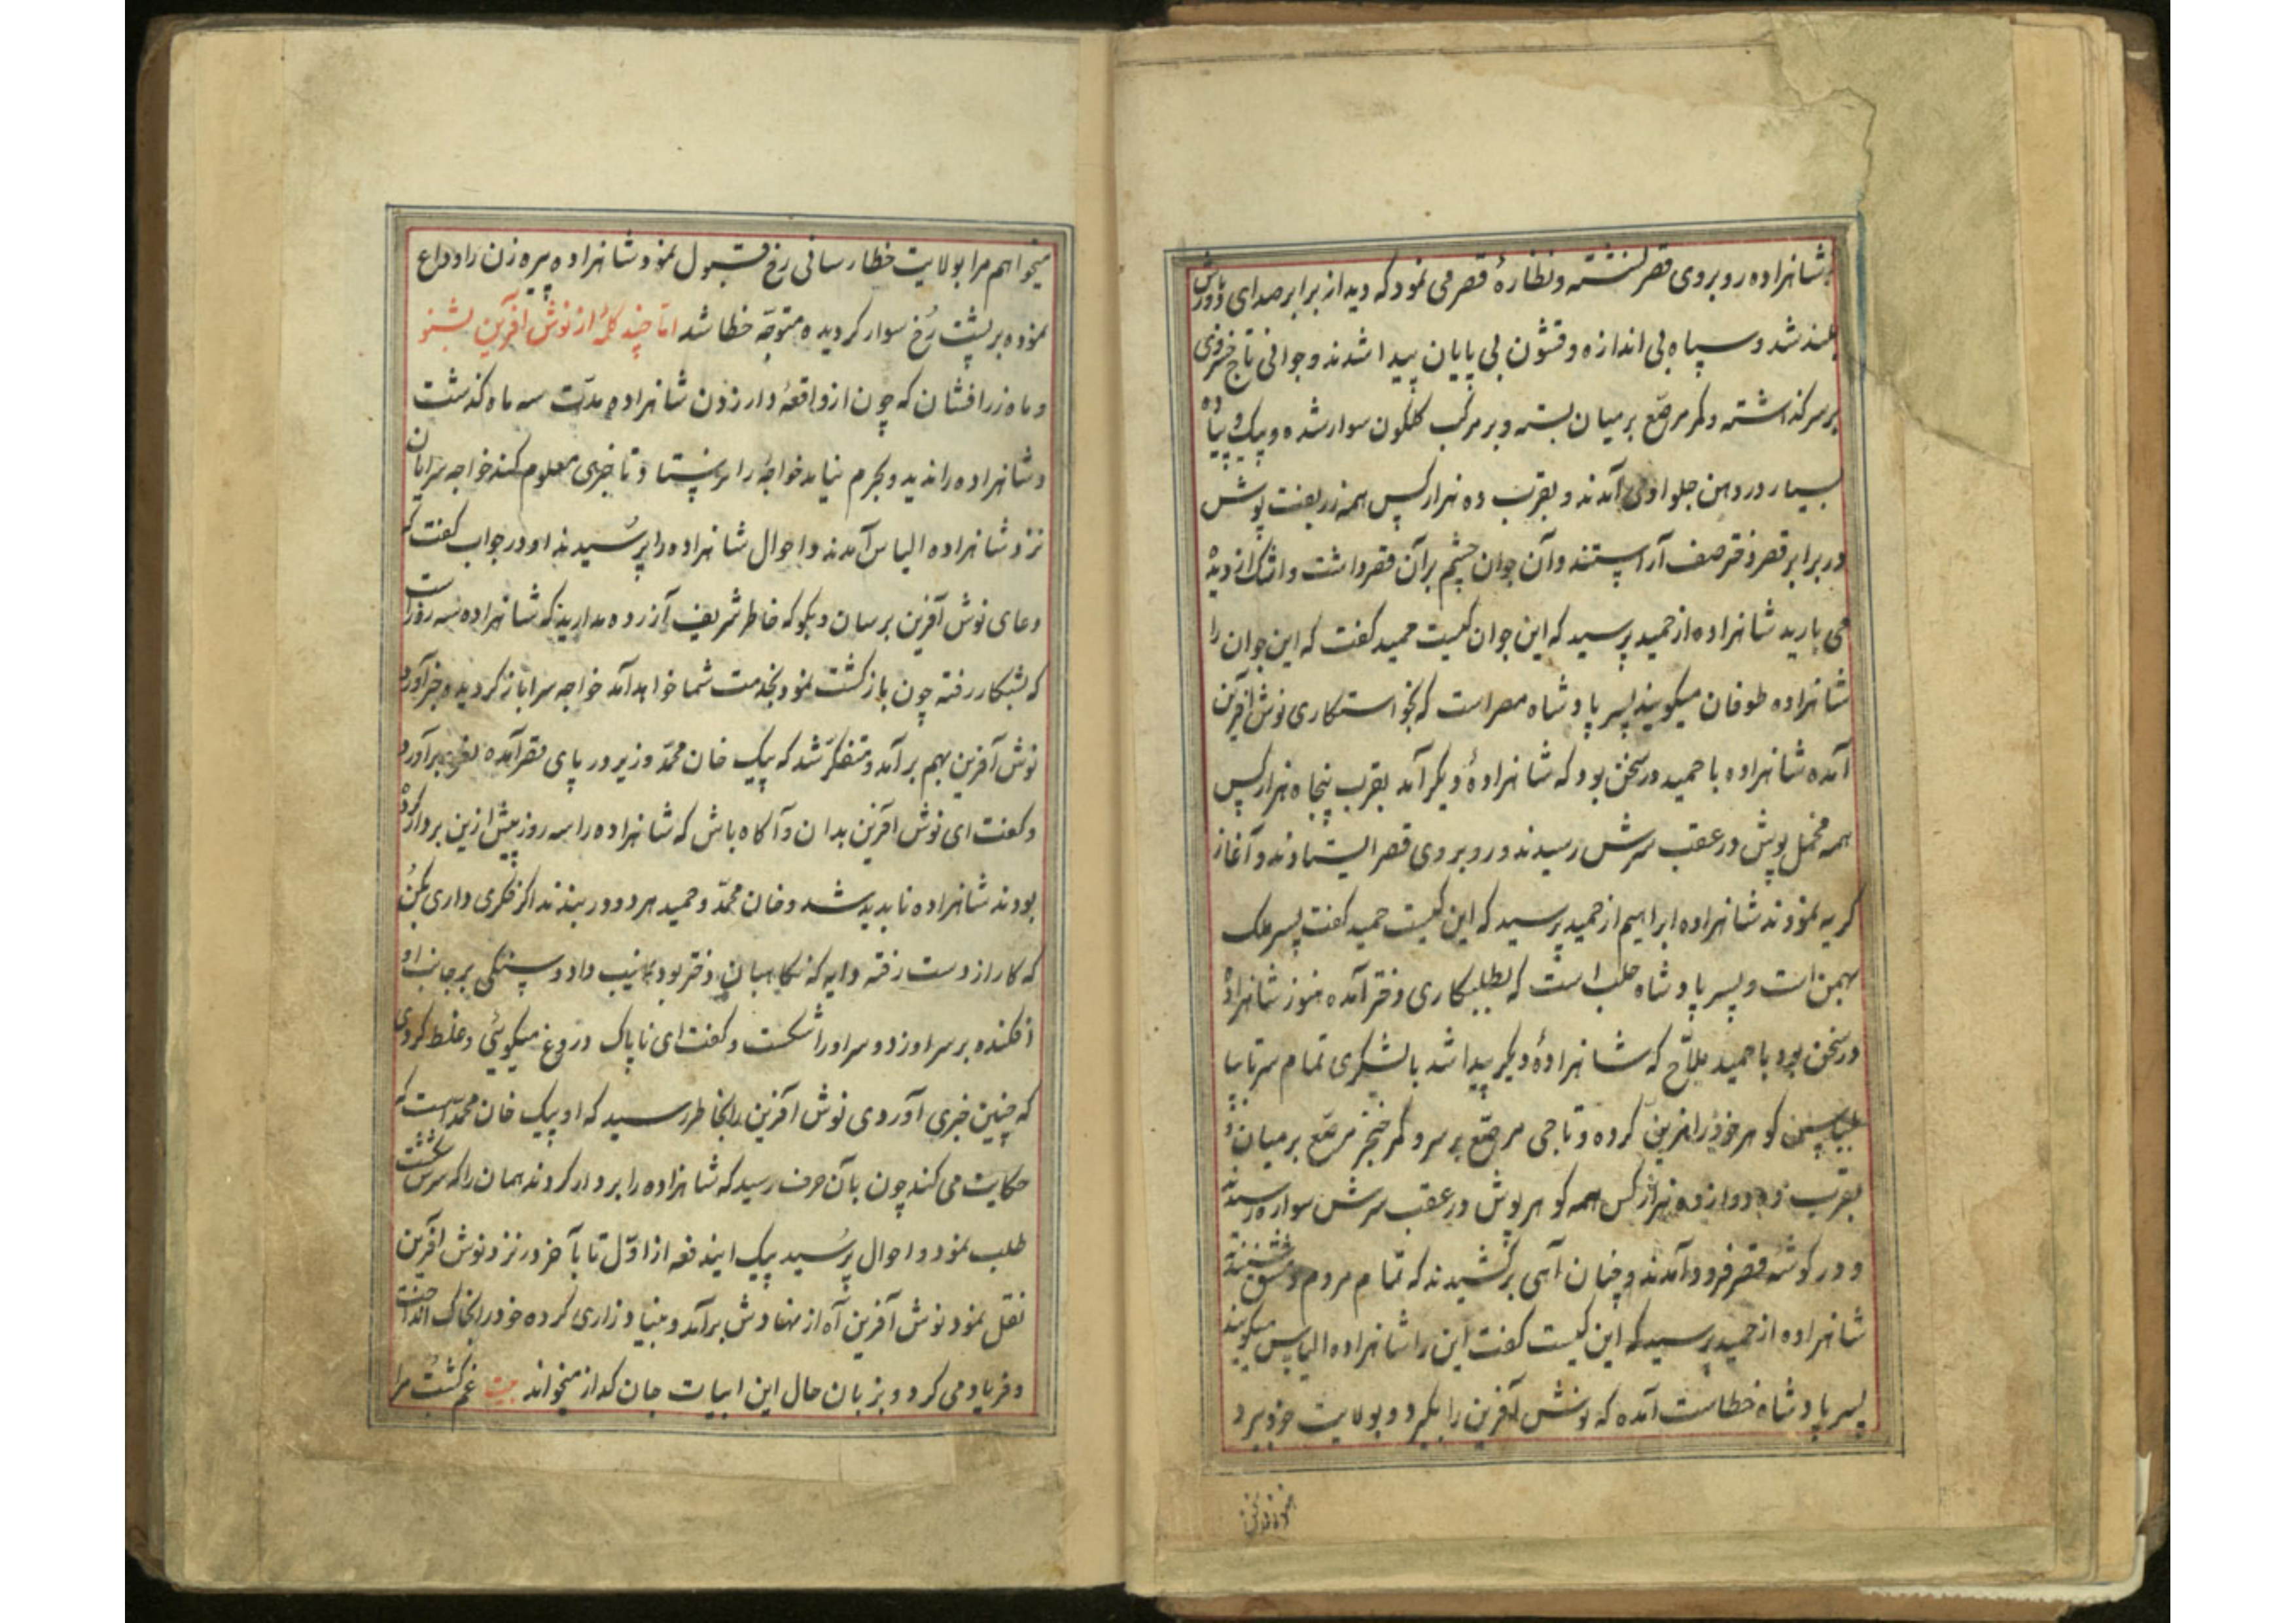 شاهزاده روبروی قصر نشسته و نظارهٔ قصر می نمود که دید از برابر صدای دورباش
بلند شد و سپاه بی اندازه و قشون بی پایان پیدا شدند و جوانی تاج خسروی
بر سر گذاشته و کمر مرصّع بر میان بسته و بر مرکب گلگون سوار شده و پیک و پیاده
بسیار در دهن جلو او می آمدند و بقرب ده هزار کس همه زربفت پوش
در برابر قصر دختر صف آراستند و آن جوان چشم بر آن قصر داشت و اشک از دیده
می بارید شاهزاده از حمید پرسید که این جوان کیست حمید گفت که این جوان را
شاهزاده طوفان میگویند پسر پادشاه مصر است که بخواستکاری نوش آفرین
آمده شاهزاده با حمید در سخن بود که شاهزادهٔ دیگر آمد بقرب پنجاه هزار کس
همه مخمل پوش در عقب سرش رسیدند و روبروی قصر ایستادند و آغاز
گریه نمودند شاهزاده ابراهیم از حمید پرسید که این کیست حمید گفت پسر ملک
بهمن است و پسر پادشاه حلب است که بطلبکاری دختر آمده هنوز شاهزاده
در سخن بود با حمید ملاّح که شاهزادهٔ دیگر پیدا شد با لشکری تمام سرتاپا
گوهر خود را مزین کرده و تاجی مرصّع بر سر و کمر خنجر مرصّع بر میان
بقرب ده دوازده هزار کس همه گوهرپوش در عقب سرش سواره رسیدند
و در گوشهٔ قصر فرود آمدند و چنان آهی برکشیدند که تمام مردم دمشق شنیدند
شاهزاده از حمید پرسید که این کیست گفت این را شاهزاده الیاس میگویند
پسر پادشاه خطاست آمده که نوش آفرین را بگیرد و بولایت خود برد
میخواهم مرا بولایت خطا رسانی رخ قبول نمود شاهزاده پیره زن را وداع
نموده بر پشت رُخ سوار گردیده متوجّه خطا شد امّا چند کلمهٔ از نوش آفرین بشنو
و ماه زرافشان که چون از واقعهٔ دار زدن شاهزاده مدّت سه ماه گذشت
و شاهزاده را ندید و بحرم نیامد خواجهٔ را فرستاد تا خبری معلوم کند خواجه سرایان
نزد شاهزاده الیاس آمدند و احوال شاهزاده را پرُسیدند او در جواب گفت که
دعای نوش آفرین برسان و بگو که خاطر شریف آزرده مدارید که شاهزاده سه روز است
که بشکار رفته چون بازگشت نمود بخدمت شما خواهد آمد خواجه سرا باز گردید و خبر آورد
نوش آفرین بهم برآمد و متفکّر شد که پیک خان محمّد وزیر در پای قصر آمده نعره برآورد
و گفت ای نوش آفرین بدان و آگاه باش که شاهزاده را سه روز پیش ازین بر دار کرده
بودند شاهزاده ناپدید شد و خان محمّد و حمید هر دو در بندند اگر فکری داری بکن
که کار از دست رفته دایه که نگاهبان دختر بود نهیب داد و سنگی بر جانب او
افکنده بر سر او زد و سر او را شکست و گفت ای ناپاک دروغ میگوئی و غلط کردی
که چنین خبری آوردی نوش آفرین را بخاطر رسید که او پیک خان محمّد است که
حکایت می کند چون بآن حرف رسید که شاهزاده را بر دار کردند همان را که سرش شکست
طلب نمود و احوال پرُسید پیک ایندفعه از اوّل تا بآخر در نزد نوش آفرین
نقل نمود نوش آفرین آه از نهادش برآمد و بنیاد زاری کرده خود را بخاک انداخت
و فریاد می کرد و بزبان حال این ابیات جان گداز میخواند بیت غم کشت مرا